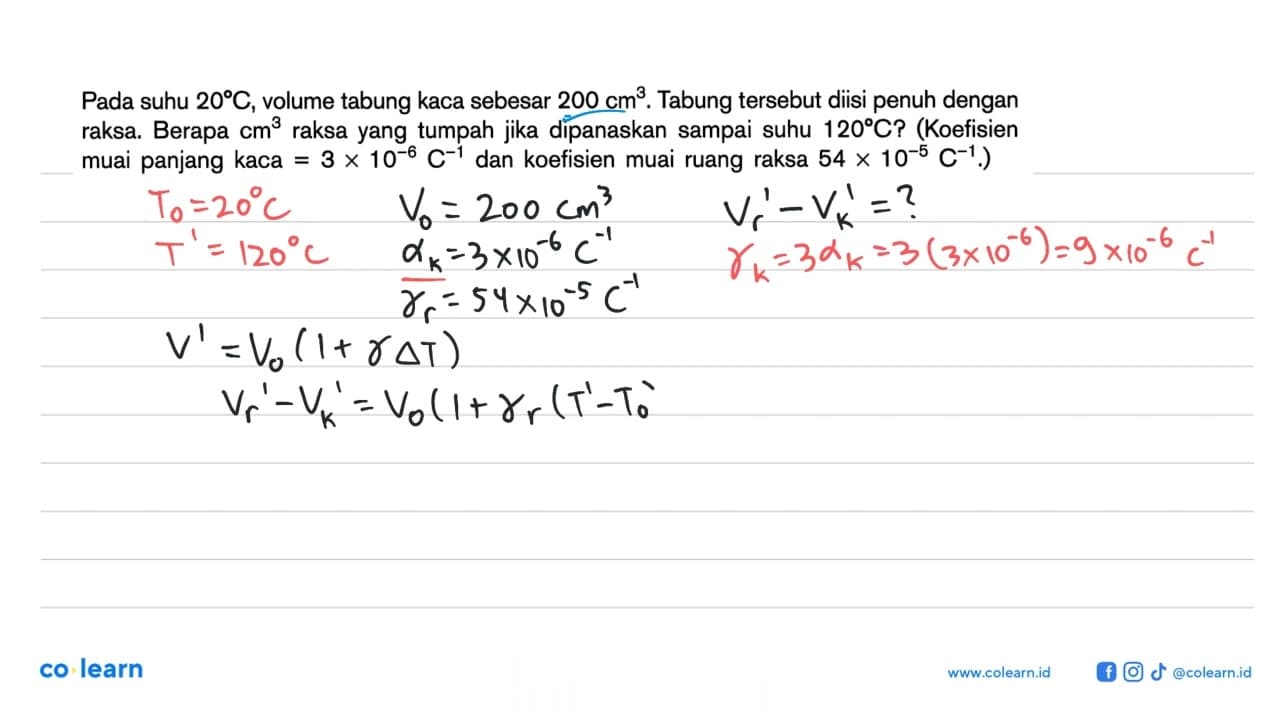 Pada suhu 20°C, volume tabung kaca sebesar 200 cm³. Tabung tersebut diisi penuh dengan
raksa. Berapa cm³ raksa yang tumpah jika dipanaskan sampai suhu 120°C? (Koefisien
muai panjang kaca = 3 × 10⁻⁶ C⁻¹ dan koefisien muai ruang raksa 54 × 10⁻⁵ C⁻¹.)
T₀ = 20°C V₀ = 200 cm³ Vᵣ' - Vₖ' = ?
T' = 120°C αₖ = 3 × 10⁻⁶ C⁻¹ γₖ = 3αₖ = 3 (3 × 10⁻⁶) = 9 × 10⁻⁶ C⁻¹
γᵣ = 54 × 10⁻⁵ C⁻¹
V' = V₀ (1 + γ ΔT)
Vᵣ' - Vₖ' = V₀ (1 + γᵣ (T' - T₀
co learn
www.colearn.id @colearn.id